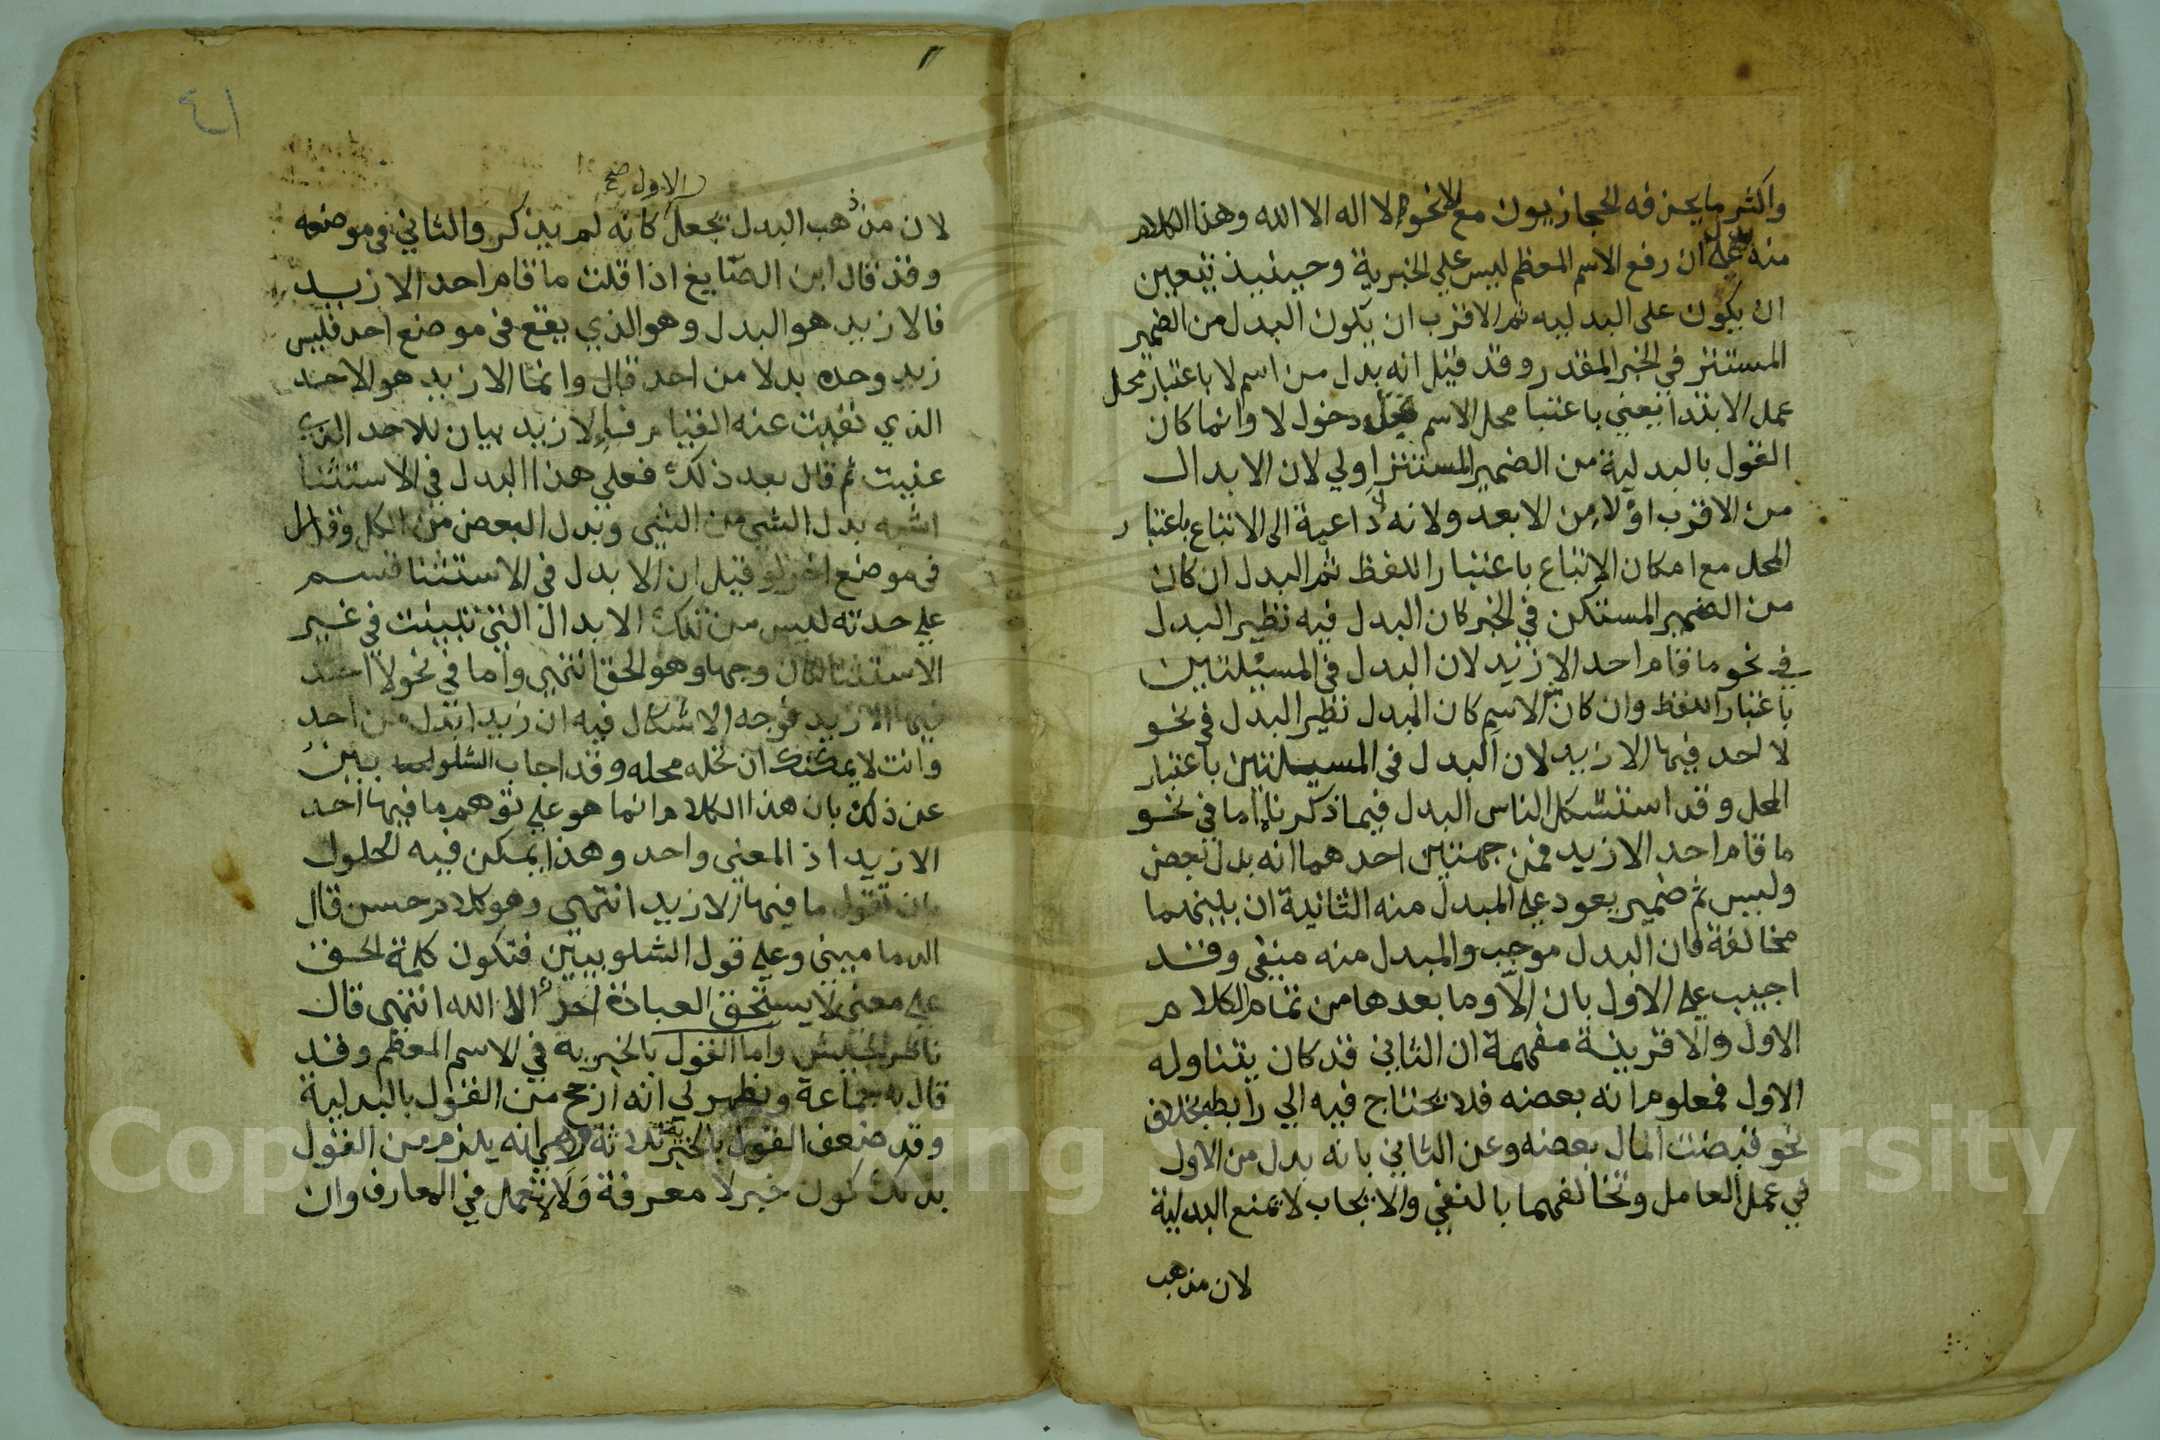 واكثر ما يحذفه الحجازيون مع الا نحو لا اله الا الله وهذا الكلام
منه يدل على ان رفع الاسم المعظم ليس علي الخبرية وحينيذ يتعين
ان يكون على البدلية ثم الاقرب ان يكون البدل من الضمير
المستتر في الخبر المقدر وقد قيل انه بدل من اسم لا باعتبار محل
عمل الابتدا يعني باعتبا محل الاسم دخول لا وانما كان
القول بالبدلية من الضمير المستتر اولي لان الابدال
من الاقرب اولا من الابعد ولانه لا داعية الى الاتباع باعتبار
المحل مع امكان الاتباع باعتبار اللفظ ثم البدل ان كان
من الضمير المستكن في الخبر كان البدل فيه نظير البدل
في نحو ما قام احد الا زيد لان البدل في المسيلتين
باعتبار اللفظ وان كان من الاسم كان البدل نظير البدل في نحو
لا احد فيها الا زيد لان البدل في المسيلتين باعتبار
المحل وقد استشكل الناس البدل فيما ذكرناه اما في نحو
ما قام احد الا زيد فمن جهتين احدهما انه بدل بعض
وليس ثم ضمير يعود علي المبدل منه الثانية ان بينهما
مخالفة فان البدل موجب والمبدل منه منفي وقد
اجيب علي الاول بان الا وما بعدها من تمام الكلام
الاول والا قرينة مفهمة ان الثاني قد كان يتناوله
الاول فمعلوم انه بعضه فلا يحتاج فيه الي رابط بخلاف
نحو قبضت المال بعضه وعن الثاني بانه بدل من الاول
في عمل العامل وتخالفهما بالنفي والايجاب لا يمنع البدلية
لان مذهب
٤١
الاول صح
لان مذهب البدل يجعل كانه لم يذكر والثاني في موضعه
وقد قال ابن الصايغ اذا قلت ما قام احد الا زيد
فالا زيد هو البدل وهو الذي يقع في موضع احد فليس
زيد وحده بدلا من احد قال وانما الا زيد هو الاحد
الذي نفيت عنه القيام فالا زيد بيان للاحد الذي
عنيت ثم قال بعد ذلك فعلي هذا البدل في الاستثنا
اشبه بدل الشي من الشي وبدل البعض من الكل وقال
في موضع اخر لو قيل ان الا بدل في الاستثنا قسم
علي حدته ليس من تلك الابدال التي تبينت في غير
الاستثنا لكان وجها وهو الحق انتهى واما في نحو لا احد
فيها الا زيد فوجه الاشكال فيه ان زيد ابدل من احد
وانت لا يمكنك ان تحله محله وقد اجاب الشلوبين
عن ذلك بان هذا الكلام انما هو علي توهم ما فيها احد
الا زيد اذ المعنى واحد وهذا يمكن فيه الحلول
بان تقول ما فيها الا زيد انتهى وهو كلام حسن قال
الدماميني وعلي قول الشلوبيين فتكون كلمة الحق
علي معنى لا يستحق العبادة احد الا الله انتهى قال
ناظر الجيش واما القول بالخبرية في الاسم المعظم وقد
قال به جماعة ويظهر لي انه ارجح من القول بالبدلية
وقد ضعف القول بالخبرية ثلاثة انه يلزم من القول
بذلك كون خبر لا معرفة ولا لا تعمل في المعارف وان